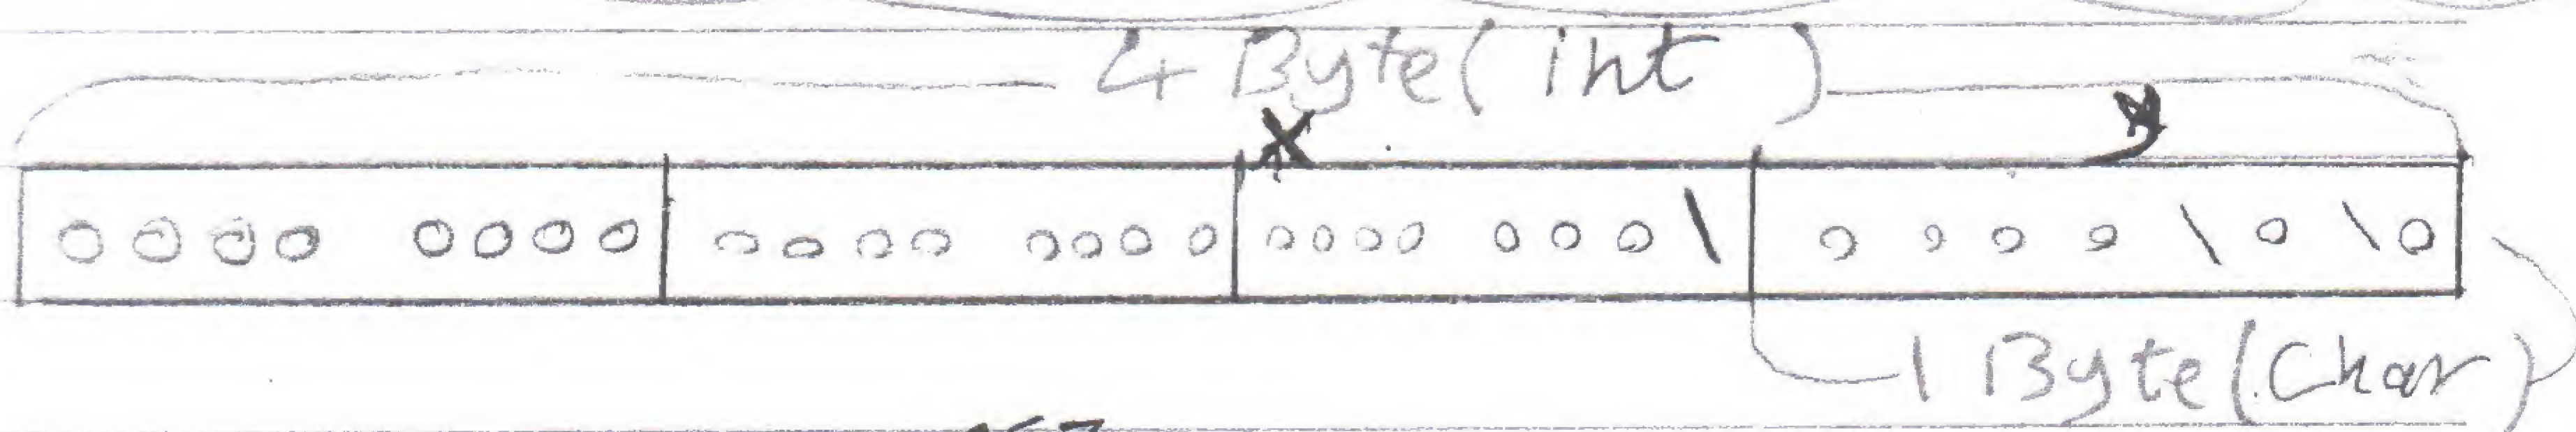 4 Byte (int)
0000 0000 0000 0000 0000 000\ 0000\0\0
1 Byte (Char)